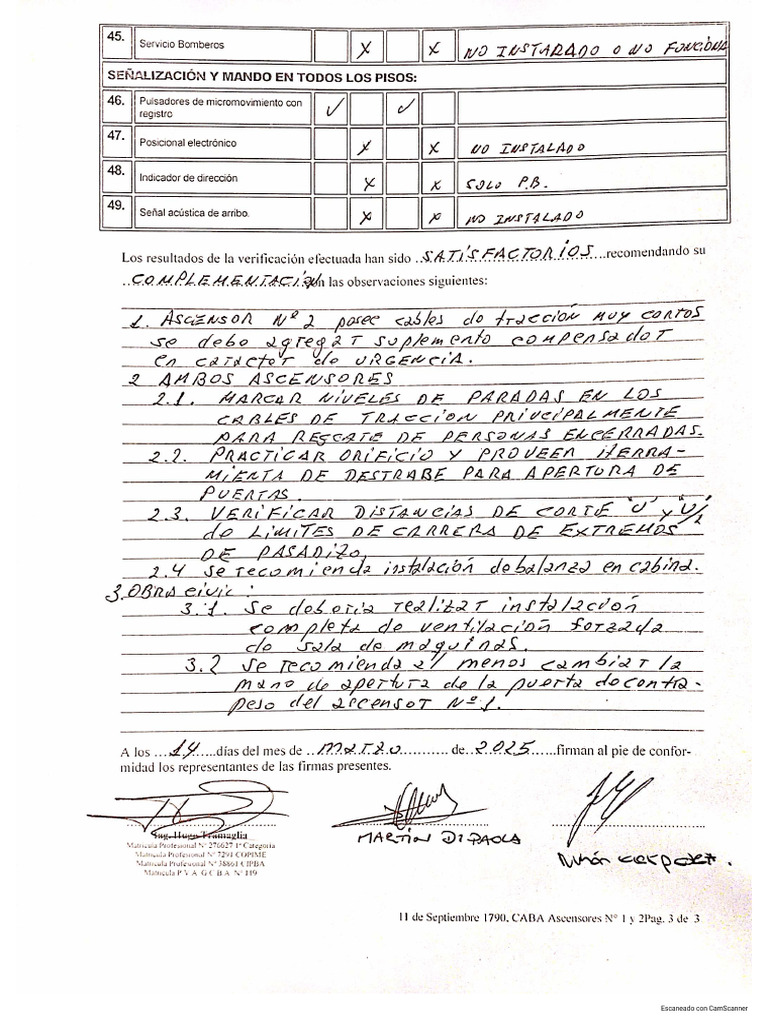 45. Servicio Bomberos X X NO INSTARADO O NO FUNCIONA
SEÑALIZACIÓN Y MANDO EN TODOS LOS PISOS:
46. Pulsadores de micromovimiento con registro ✓ ✓
47. Posicional electrónico X X NO INSTALADO
48. Indicador de dirección X X SOLO P.B.
49. Señal acústica de arribo. X X NO INSTALADO
Los resultados de la verificación efectuada han sido ..SATISFACTORIOS....recomendando su
..COMPLEMENTACIÓN las observaciones siguientes:
1. ASCENSOR Nº 2 posee cables de tracción MUY CORTOS
se debe agregar suplemento compensador
en carácter de URGENCIA.
2 AMBOS ASCENSORES
2.1. MARCAR NIVELES DE PARADAS EN LOS
CABLES DE TRACCION PRINCIPALMENTE
PARA RESCATE DE PERSONAS ENCERRADAS.
2.2. PRACTICAR ORIFICIO Y PROVEER HERRA-
MIENTA DE DESTRABE PARA APERTURA DE
PUERTAS.
2.3. VERIFICAR DISTANCIAS DE CORTE "U" y U/2
de LIMITES DE CARRERA DE EXTREMOS
DE PASADIZO
2.4 se recomienda instalación de balanza en cabina.
3. OBRA civil:
3.1. se debería realizar instalación
completa de ventilación forzada
de sala de maquinas.
3.2 se recomienda al menos cambiar la
mano de apertura de la puerta de contra-
peso del ascensor Nº 1.
A los ...14......días del mes de ..marzo........... de..2025......firman al pie de confor-
midad los representantes de las firmas presentes.
Ing. Hugo Tramaglia
Matrícula Profesional Nº 276627 1ª Categoría
Matrícula Profesional Nº 7291 COPIME
Matrícula Profesional Nº 38861 CIPBA
Matrícula P.V.A. G.C.B.A. Nº 119
MARTÍN DI PAOLA
11 de Septiembre 1790, CABA Ascensores Nº 1 y 2Pag. 3 de 3
Escaneado con CamScanner